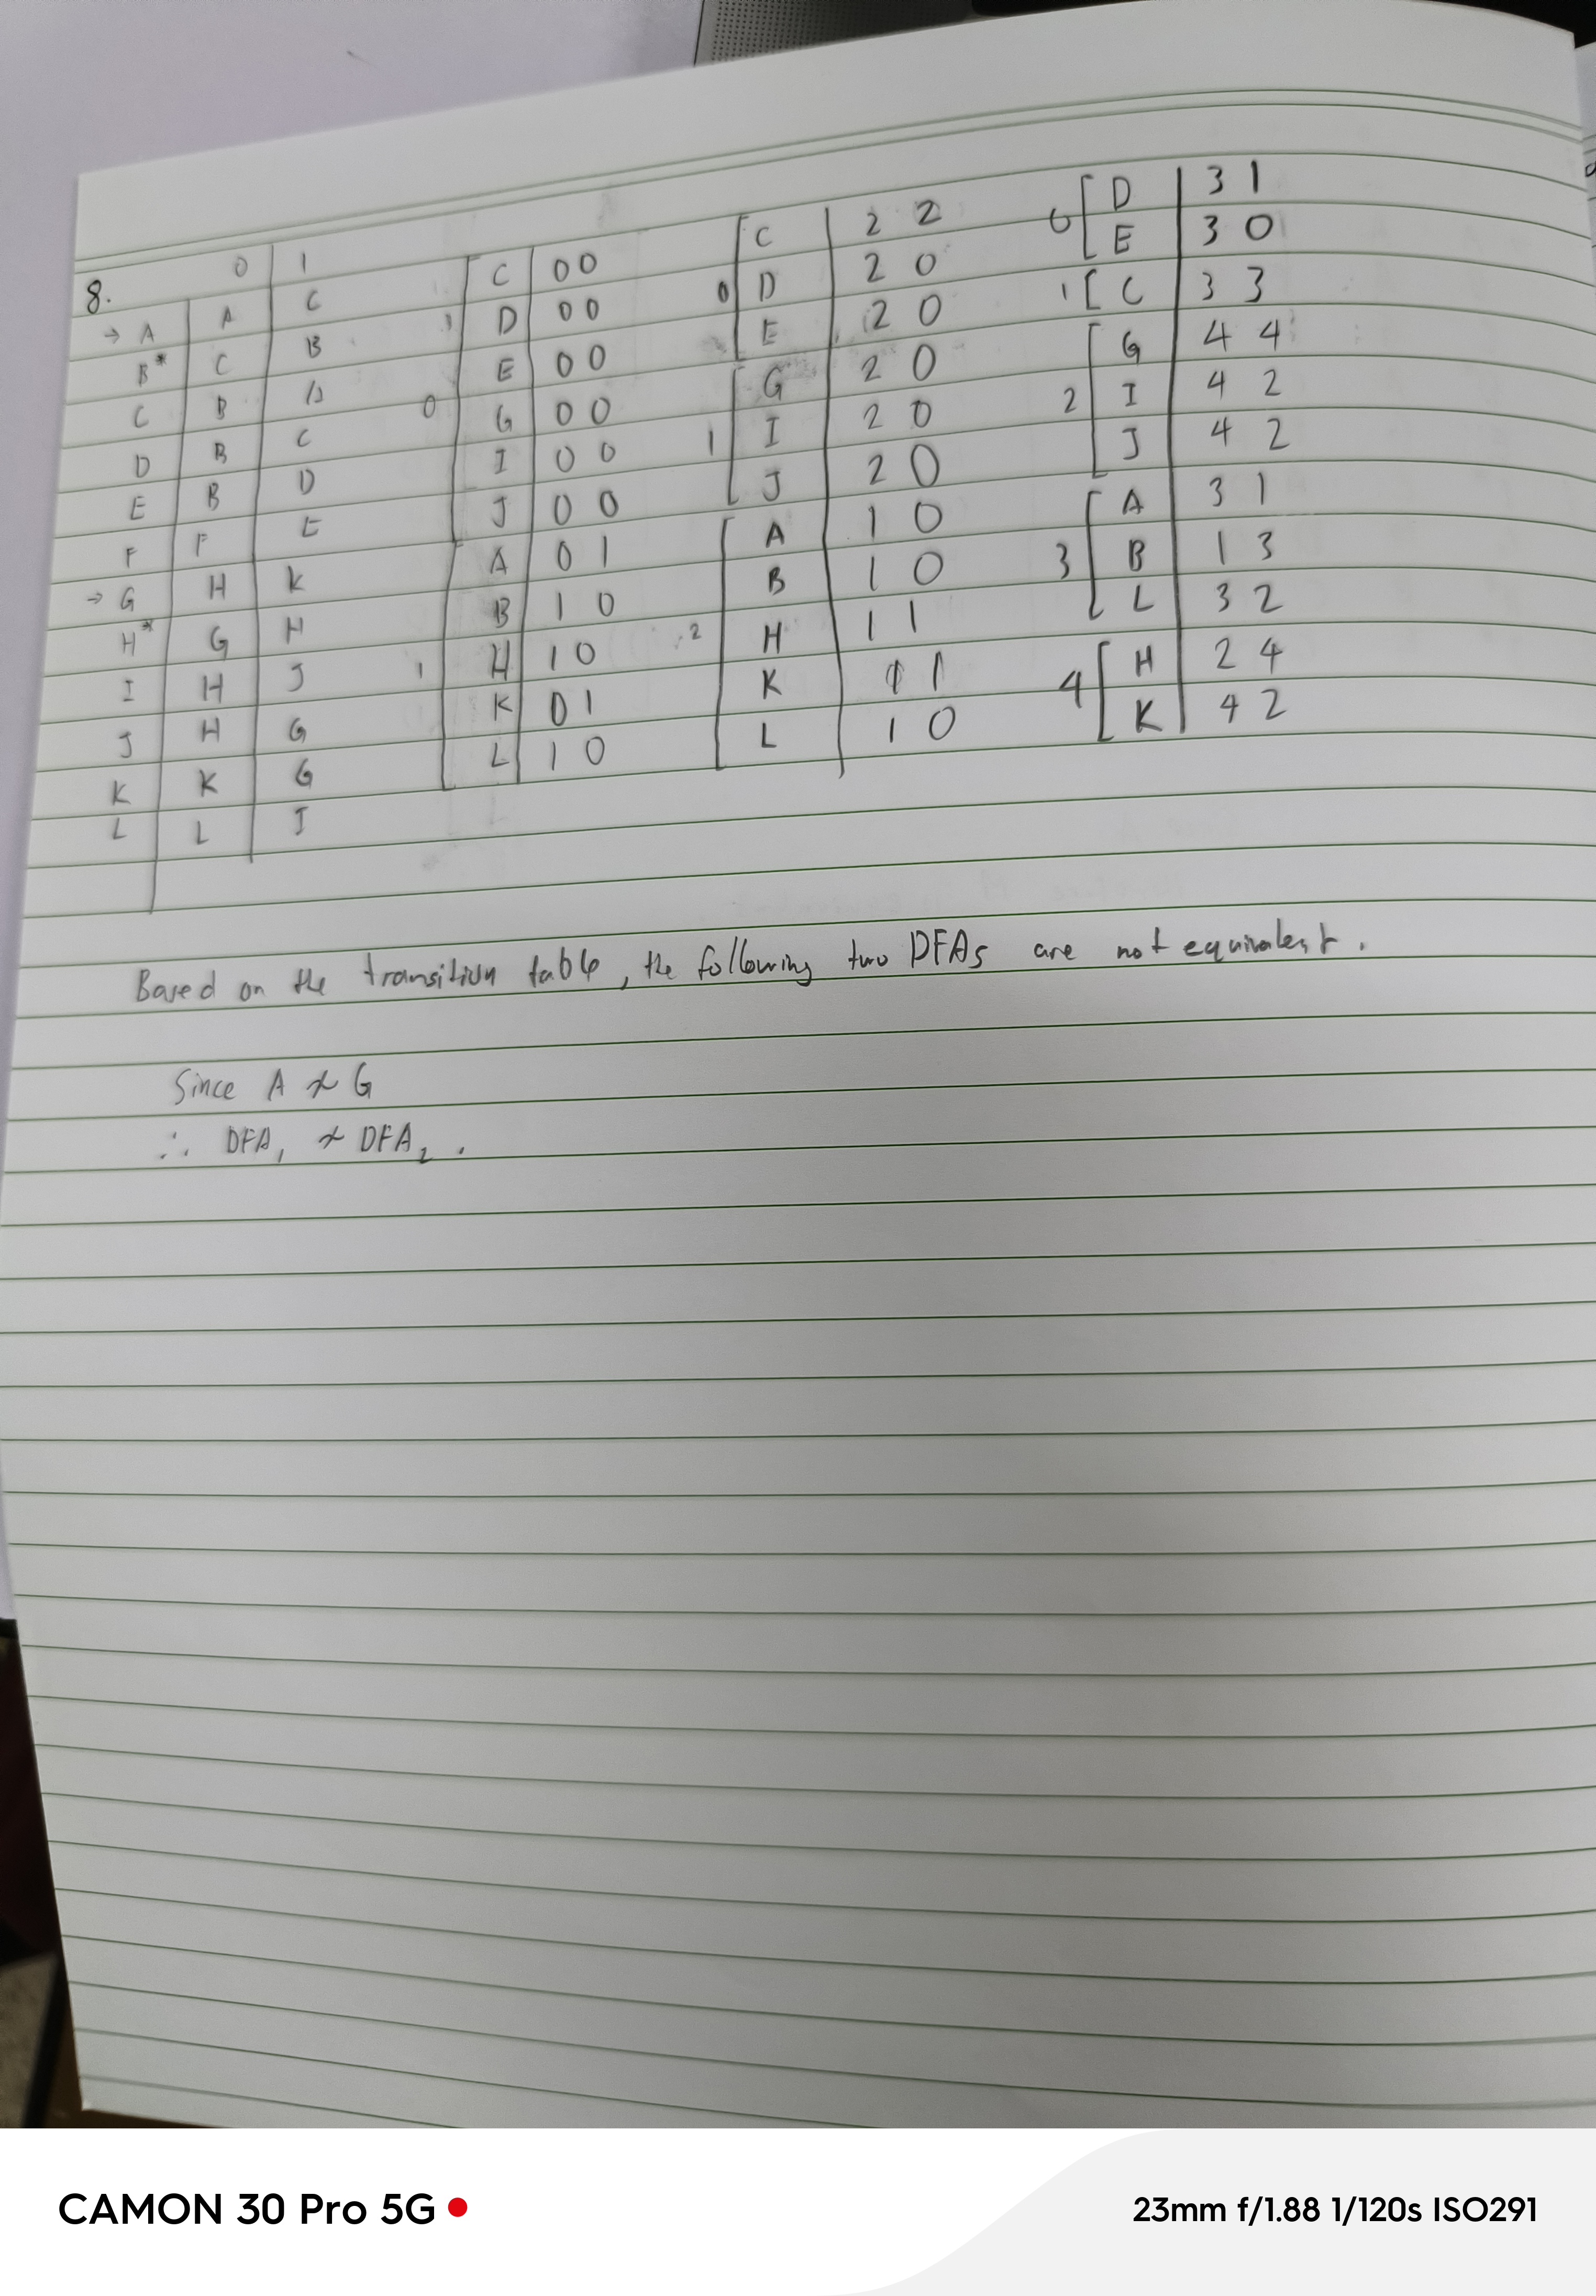 8.
0 1
→ A A C
B* C B
C B D
D B C
E B D
F F E
→ G H K
H* G H
I H J
J H G
K K G
L L I
0
1
C 0 0
D 0 0
E 0 0
G 0 0
I 0 0
J 0 0
1
A 0 1
B 1 0
H 1 0
K 0 1
L 1 0
0
C 2 2
D 2 0
E 2 0
1
G 2 0
I 2 0
J 2 0
2
A 1 0
B 1 0
H 1 1
K 1 1
L 1 0
0
D 3 1
E 3 0
1
C 3 3
2
G 4 4
I 4 2
J 4 2
3
A 3 1
B 1 3
L 3 2
4
H 2 4
K 4 2
Based on the transition table, the following two DFAs are not equivalent.
Since A ≁ G
∴ DFA₁ ≁ DFA₂.
CAMON 30 Pro 5G
23mm f/1.88 1/120s ISO291